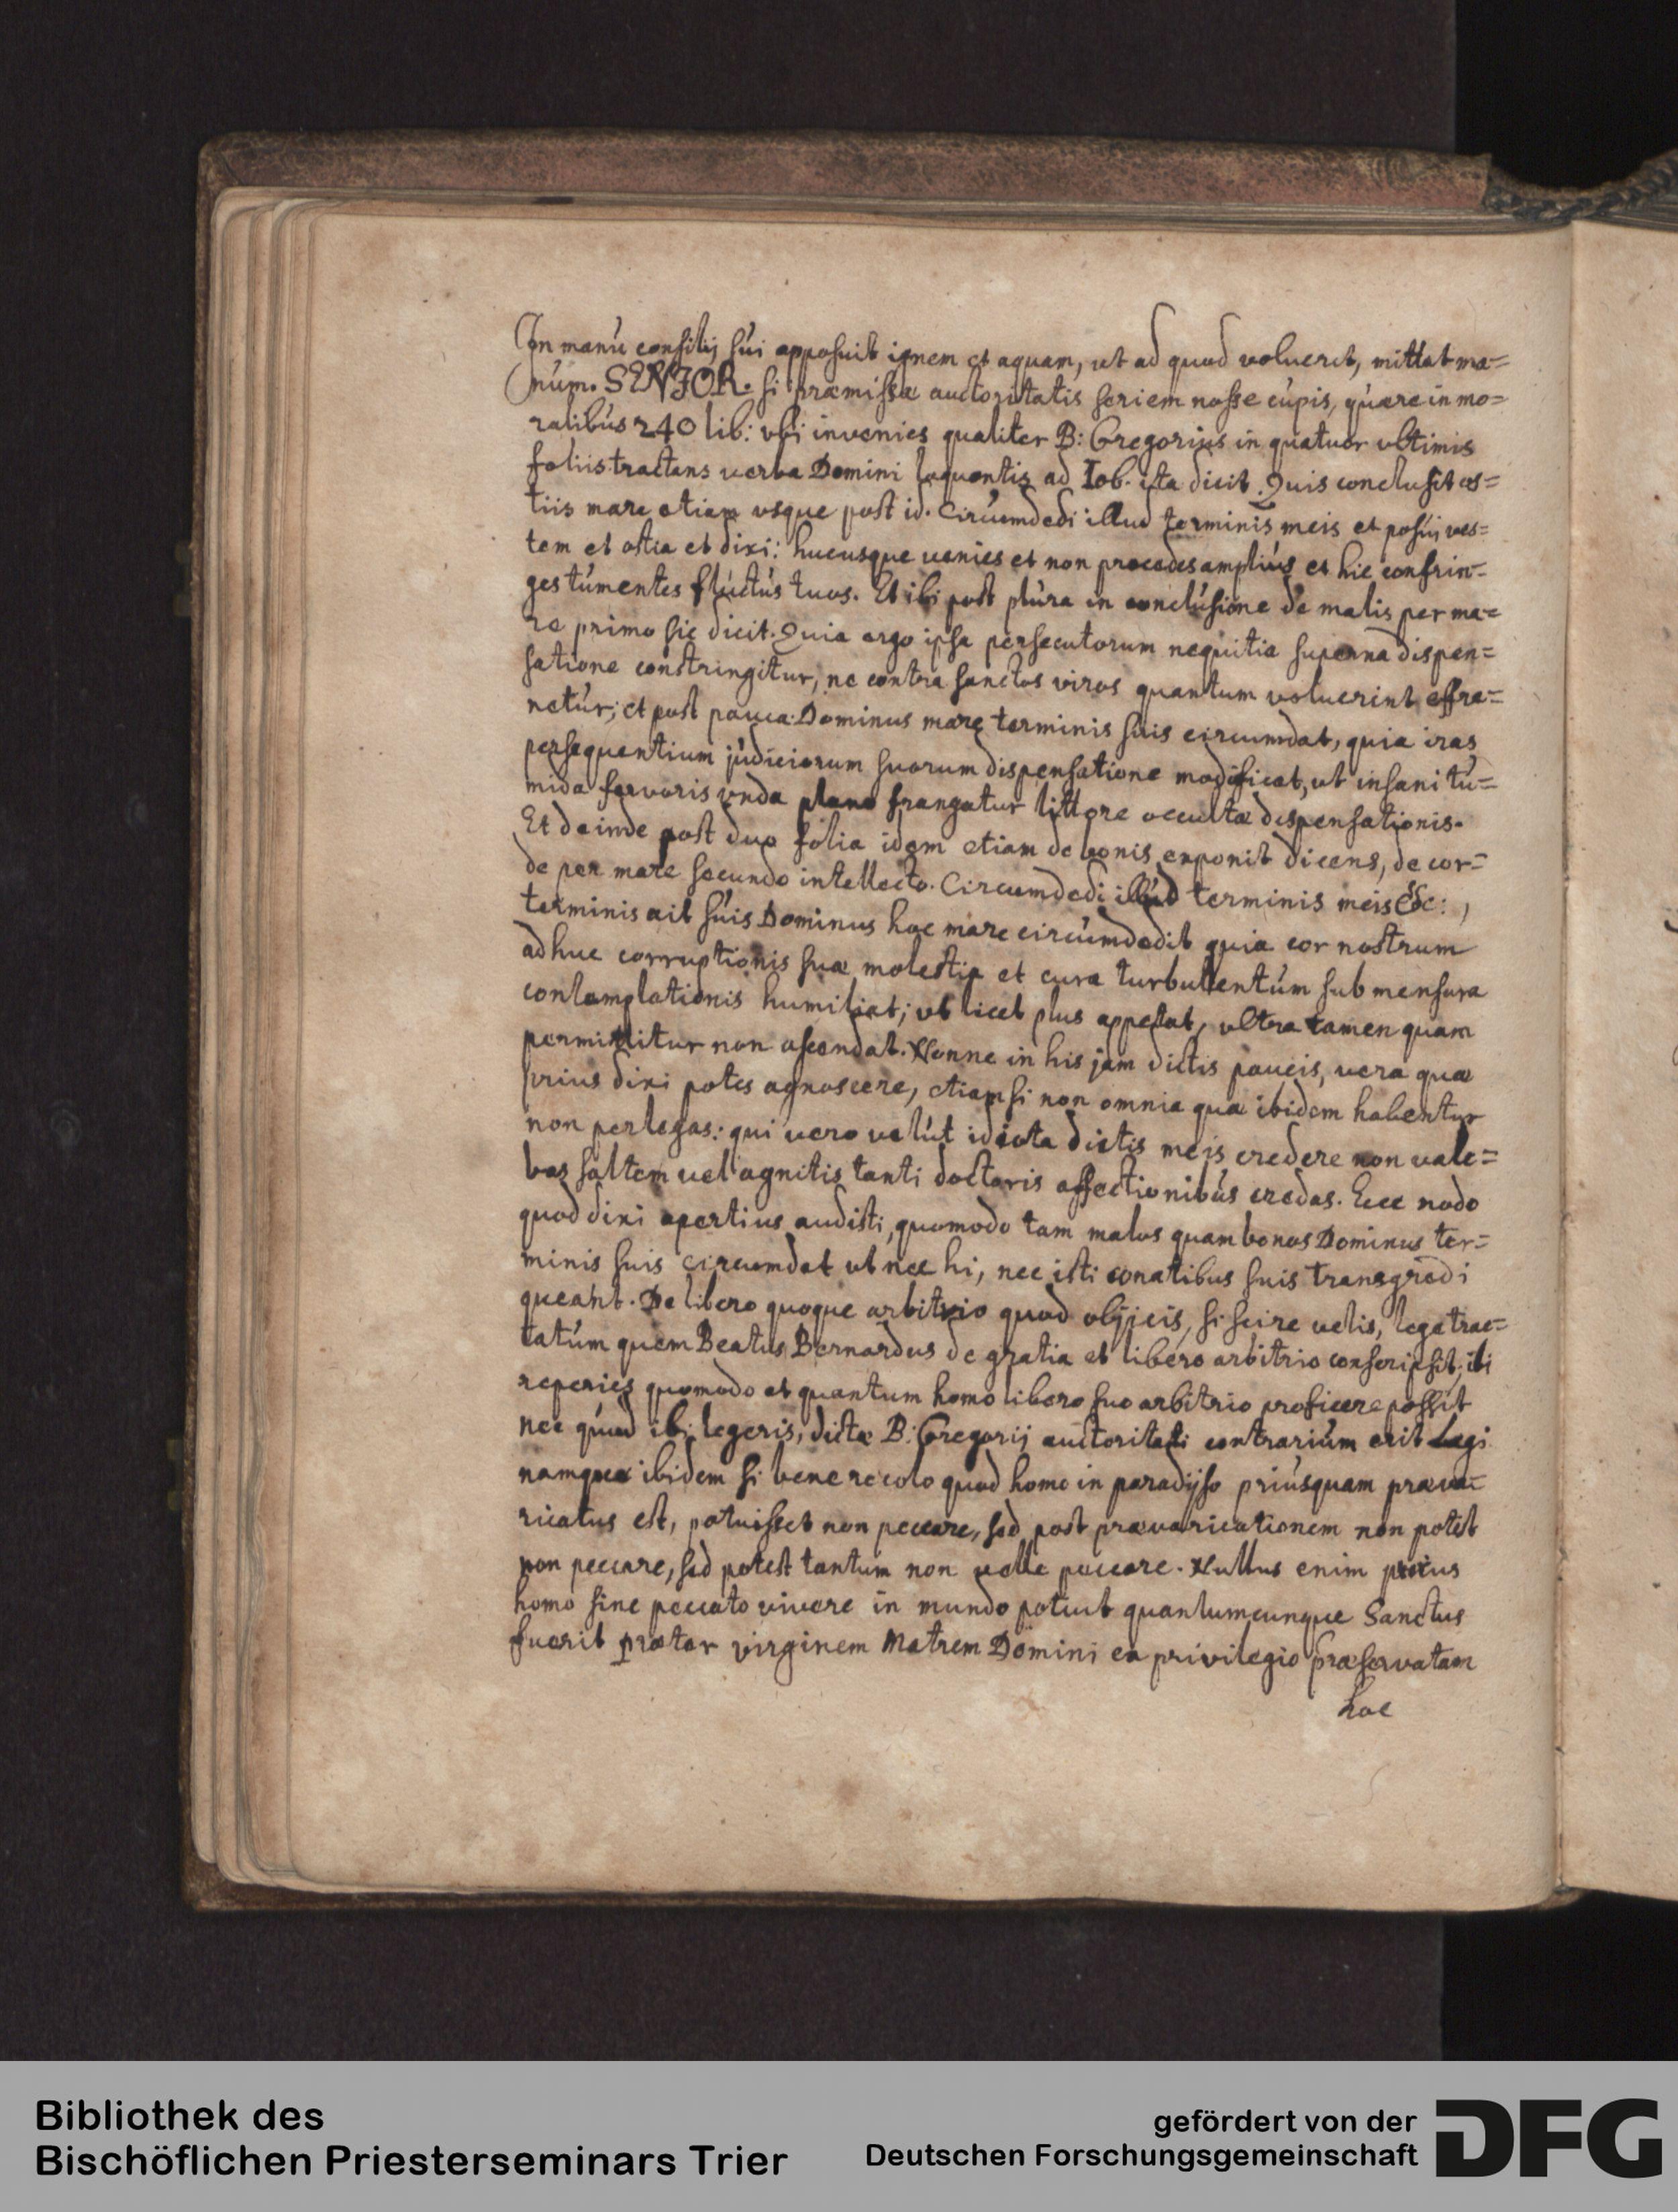 In manu consilij sui apposuit ignem et aquam, ut ad quod voluerit, mittat ma=
num. SENJOR. si præmissæ auctoritatis seriem nosse cupis, quære in mo=
ralibus 240 lib: vbi invenies qualiter B: Gregorius in quatuor vltimis
foliis tractans verba Domini loquentis ad Iob. ista dicit. Quis conclusit os=
tiis mare etiam vsque post id. Circumdedi illud terminis meis et posui ves=
tem et ostia et dixi: hucusque venies et non procedes amplius et hic confrin=
ges tumentes fluctus tuos. Et ibi post plura in conclusione de malis per ma=
re primo sic dicit. Quia ergo ipsa persecutorum nequitia superna dispen=
satione constringitur, ne contra sanctos viros quantum voluerint effre=
netur; et post pauca: Dominus mare terminis suis circumdat, quia iras
persequentium judiciorum suorum dispensatione modificat, ut insani tu=
mida fervoris vnda plano frangatur littore occultæ dispensationis.
Et deinde post duo folia idem etiam de bonis exponit dicens, de cor=
de per mare secundo intellecto. Circumdedi illud terminis meis &c: ,
terminis ait suis Dominus hoc mare circumdedit quia cor nostrum
adhuc corruptionis suæ molestia et cura turbulentum sub mensura
contemplationis humiliat; ut licet plus appetat, vltra tamen quam
permittitur non ascendat. Nonne in his jam dictis paucis, vera quæ
prius dixi potes agnoscere, etiamsi non omnia quæ ibidem habentur
non perlegas: qui vero velut idiota dictis meis credere non vale=
bas saltem vel agnitis tanti doctoris affectionibus credas. Ecce nodo
quod dixi apertius audisti, quomodo tam malos quam bonos Dominus ter=
minis suis circumdat ut nec hi, nec isti conatibus suis transgredi
queant. De libero quoque arbitrio quod objicis, si scire velis, lege trac=
tatum quem Beatus Bernardus de gratia et libero arbitrio conscripsit; ibi
reperies quomodo et quantum homo libero suo arbitrio proficere possit
nec quod ibi legeris, dictæ B: Gregorij auctoritati contrarium erit Legi
namque ibidem si bene recolo quod homo in paradyso priusquam præva=
ricatus est, potuisset non peccare, sed post prævaricationem non potest
non peccare, sed potest tantum non velle peccare. Nullus enim
homo sine peccato vivere in mundo potuit quantumcunque Sanctus
fuerit præter virginem Matrem Domini ex privilegio præservatam
hoc
Bibliothek des
Bischöflichen Priesterseminars Trier
gefördert von der
Deutschen Forschungsgemeinschaft
DFG